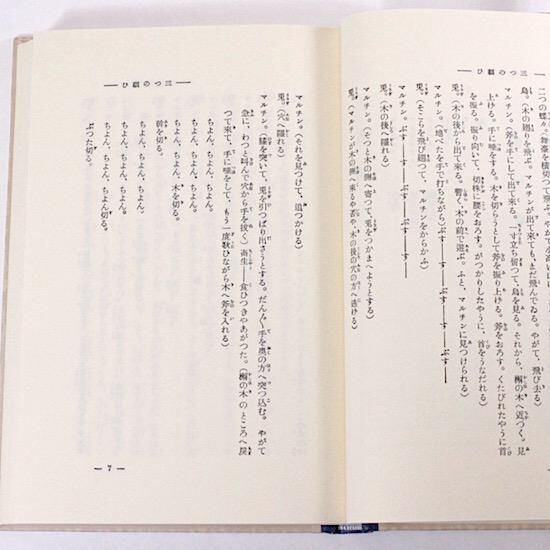 三つの願ひ
二つの蝶々、舞臺を横切つて飛ぶ。やがて小
鳥。(木の廻りを飛ぶ。マルチンが出て來ても、まだ飛んでゐる。やがて、飛び去る)
マルチン。(斧を手にして出て來る。一寸立ち留つて、鳥を見る。それから、樹の木へ近づく。見
上げる。手に唾をする。木を切らうとして斧を振り上げる。斧をおろす。くたびれたやうに首
を振る。振り向いて、切株へ腰をおろす。がつかりしたやうに、首をうなだれる)
兎。(木の後から出て來る。暫く、木の前で遊ぶ。ふと、マルチンに見つけられる)
マルチン。(地べたを手で打ちながら)ぷす――す――ぷす――す――
兎。(そこらを飛び廻つて、マルチンをからかふ)
マルチン。ぷす――す――ぷす――す――
兎。(木の後へ隱れる)
マルチン。(そつと木の側へ寄つて、兎をつかまへようとする)
兎。(マルチンが木の側へ來るや否や、木の後の穴の方へ逃ける)
三つの願ひ
マルチン。(それを見つけて、追つかける)
兎。(穴へ隱れる)
マルチン。(膝を突いて、兎を引つぱり出さうとする。だん〱手を奧の方へ突つ込む。やがて
急に、わつと叫んで穴から手を拔く)畜生――食ひつきやあがつた。(樹の木のところへ戻
つて來て、手に唾をして、もう一度歌ひながら木へ斧を入れる)
ちよん、ちよん、ちよん、
ちよん、ちよん、木を切る。
ちよん、ちよん、ちよん、
幹を切る。
ちよん、ちよん、ちよん、
ちよん、ちよん、ちよん。
ぶつた切る。
7